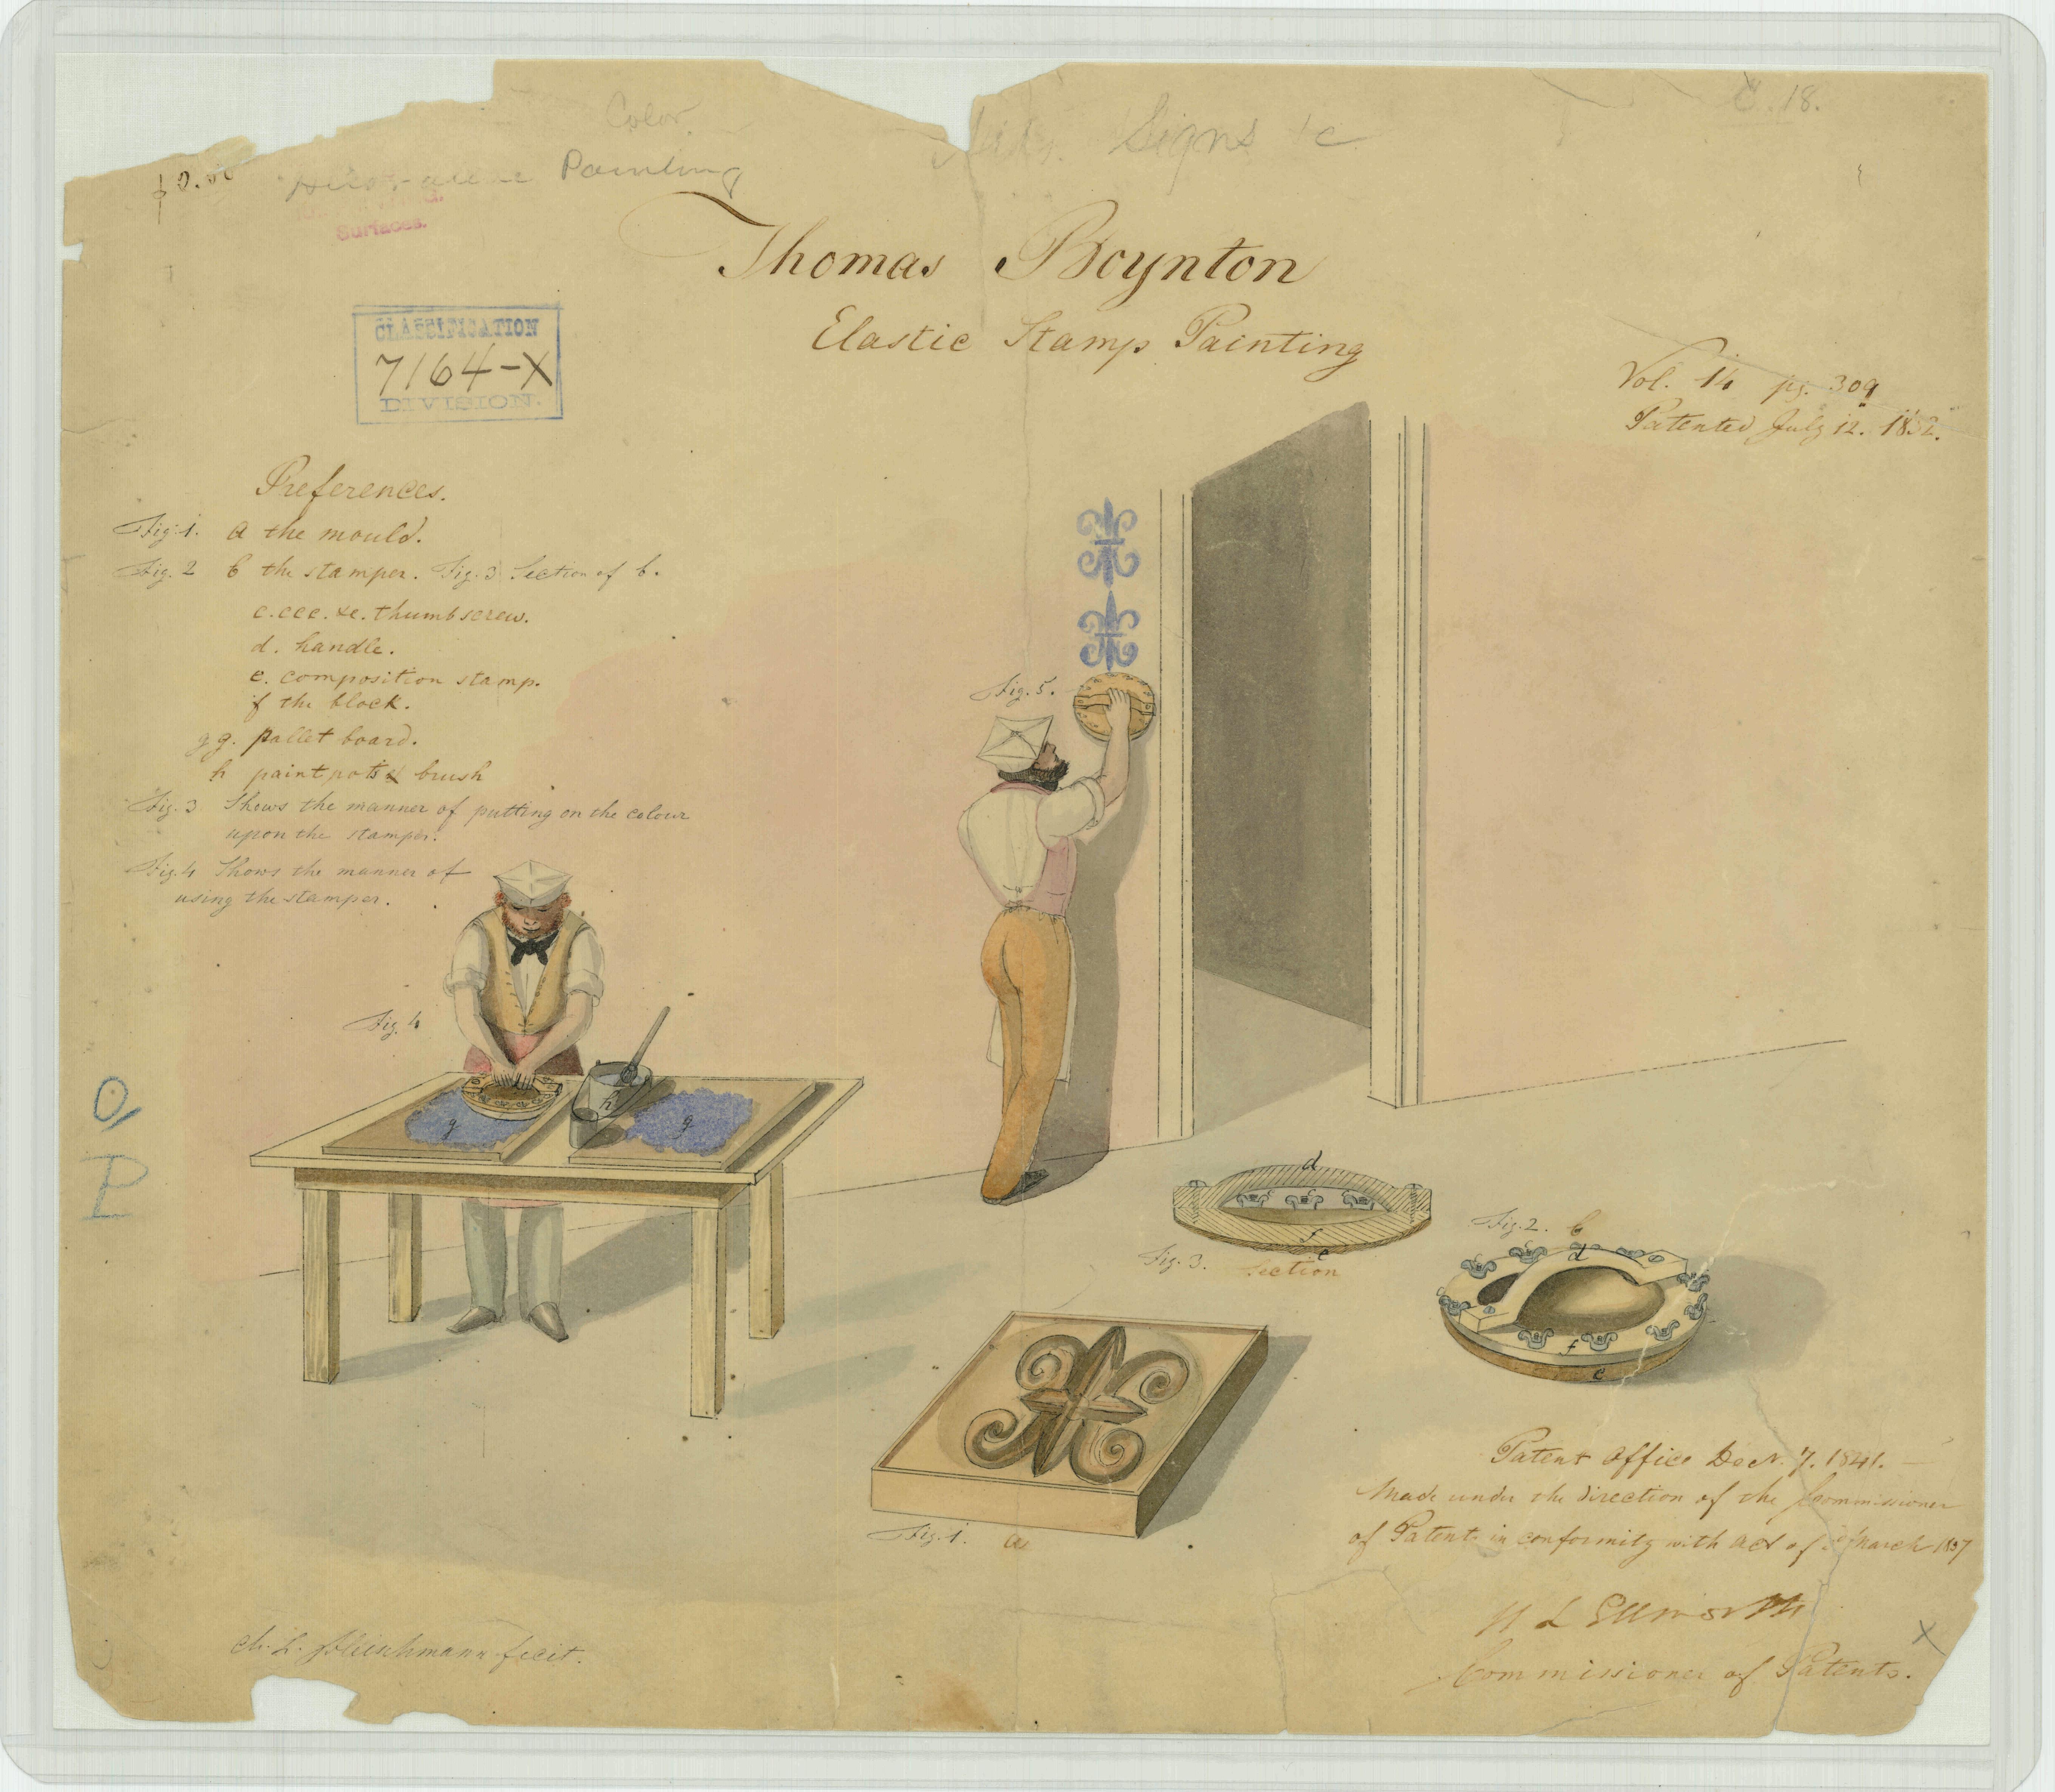 Color
$0.00 Painting
Signs &c
C. 18.
Surfaces.
Thomas Boynton
Elastic Stamp Painting
CLASSIFICATION
7164-X
DIVISION.
Vol. 14 pg. 309
Patented July 12. 1832.
References.
Fig. 1. a the mould.
Fig. 2 b the stamper. Fig. 3 Section of b.
c.ccc. &c. thumbscrew.
d. handle.
e. composition stamp.
f the block.
g g. pallet board.
h paintpots & brush
Fig. 3 Shews the manner of putting on the colour
upon the stamper.
Fig. 4 Shows the manner of
using the stamper.
Fig. 5.
Fig. 4
g h g
O
P
d
f
e
Fig. 3. Section
Fig. 2. b
d
f
e
Fig. 1. a
Patent Office Decr. 7. 1841.
Made under the direction of the Commissioner
of Patents in conformity with Act of 3d March 1837
H L Ellsworth
Commissioner of Patents.
X
Ch. L. Fleischmann fecit.